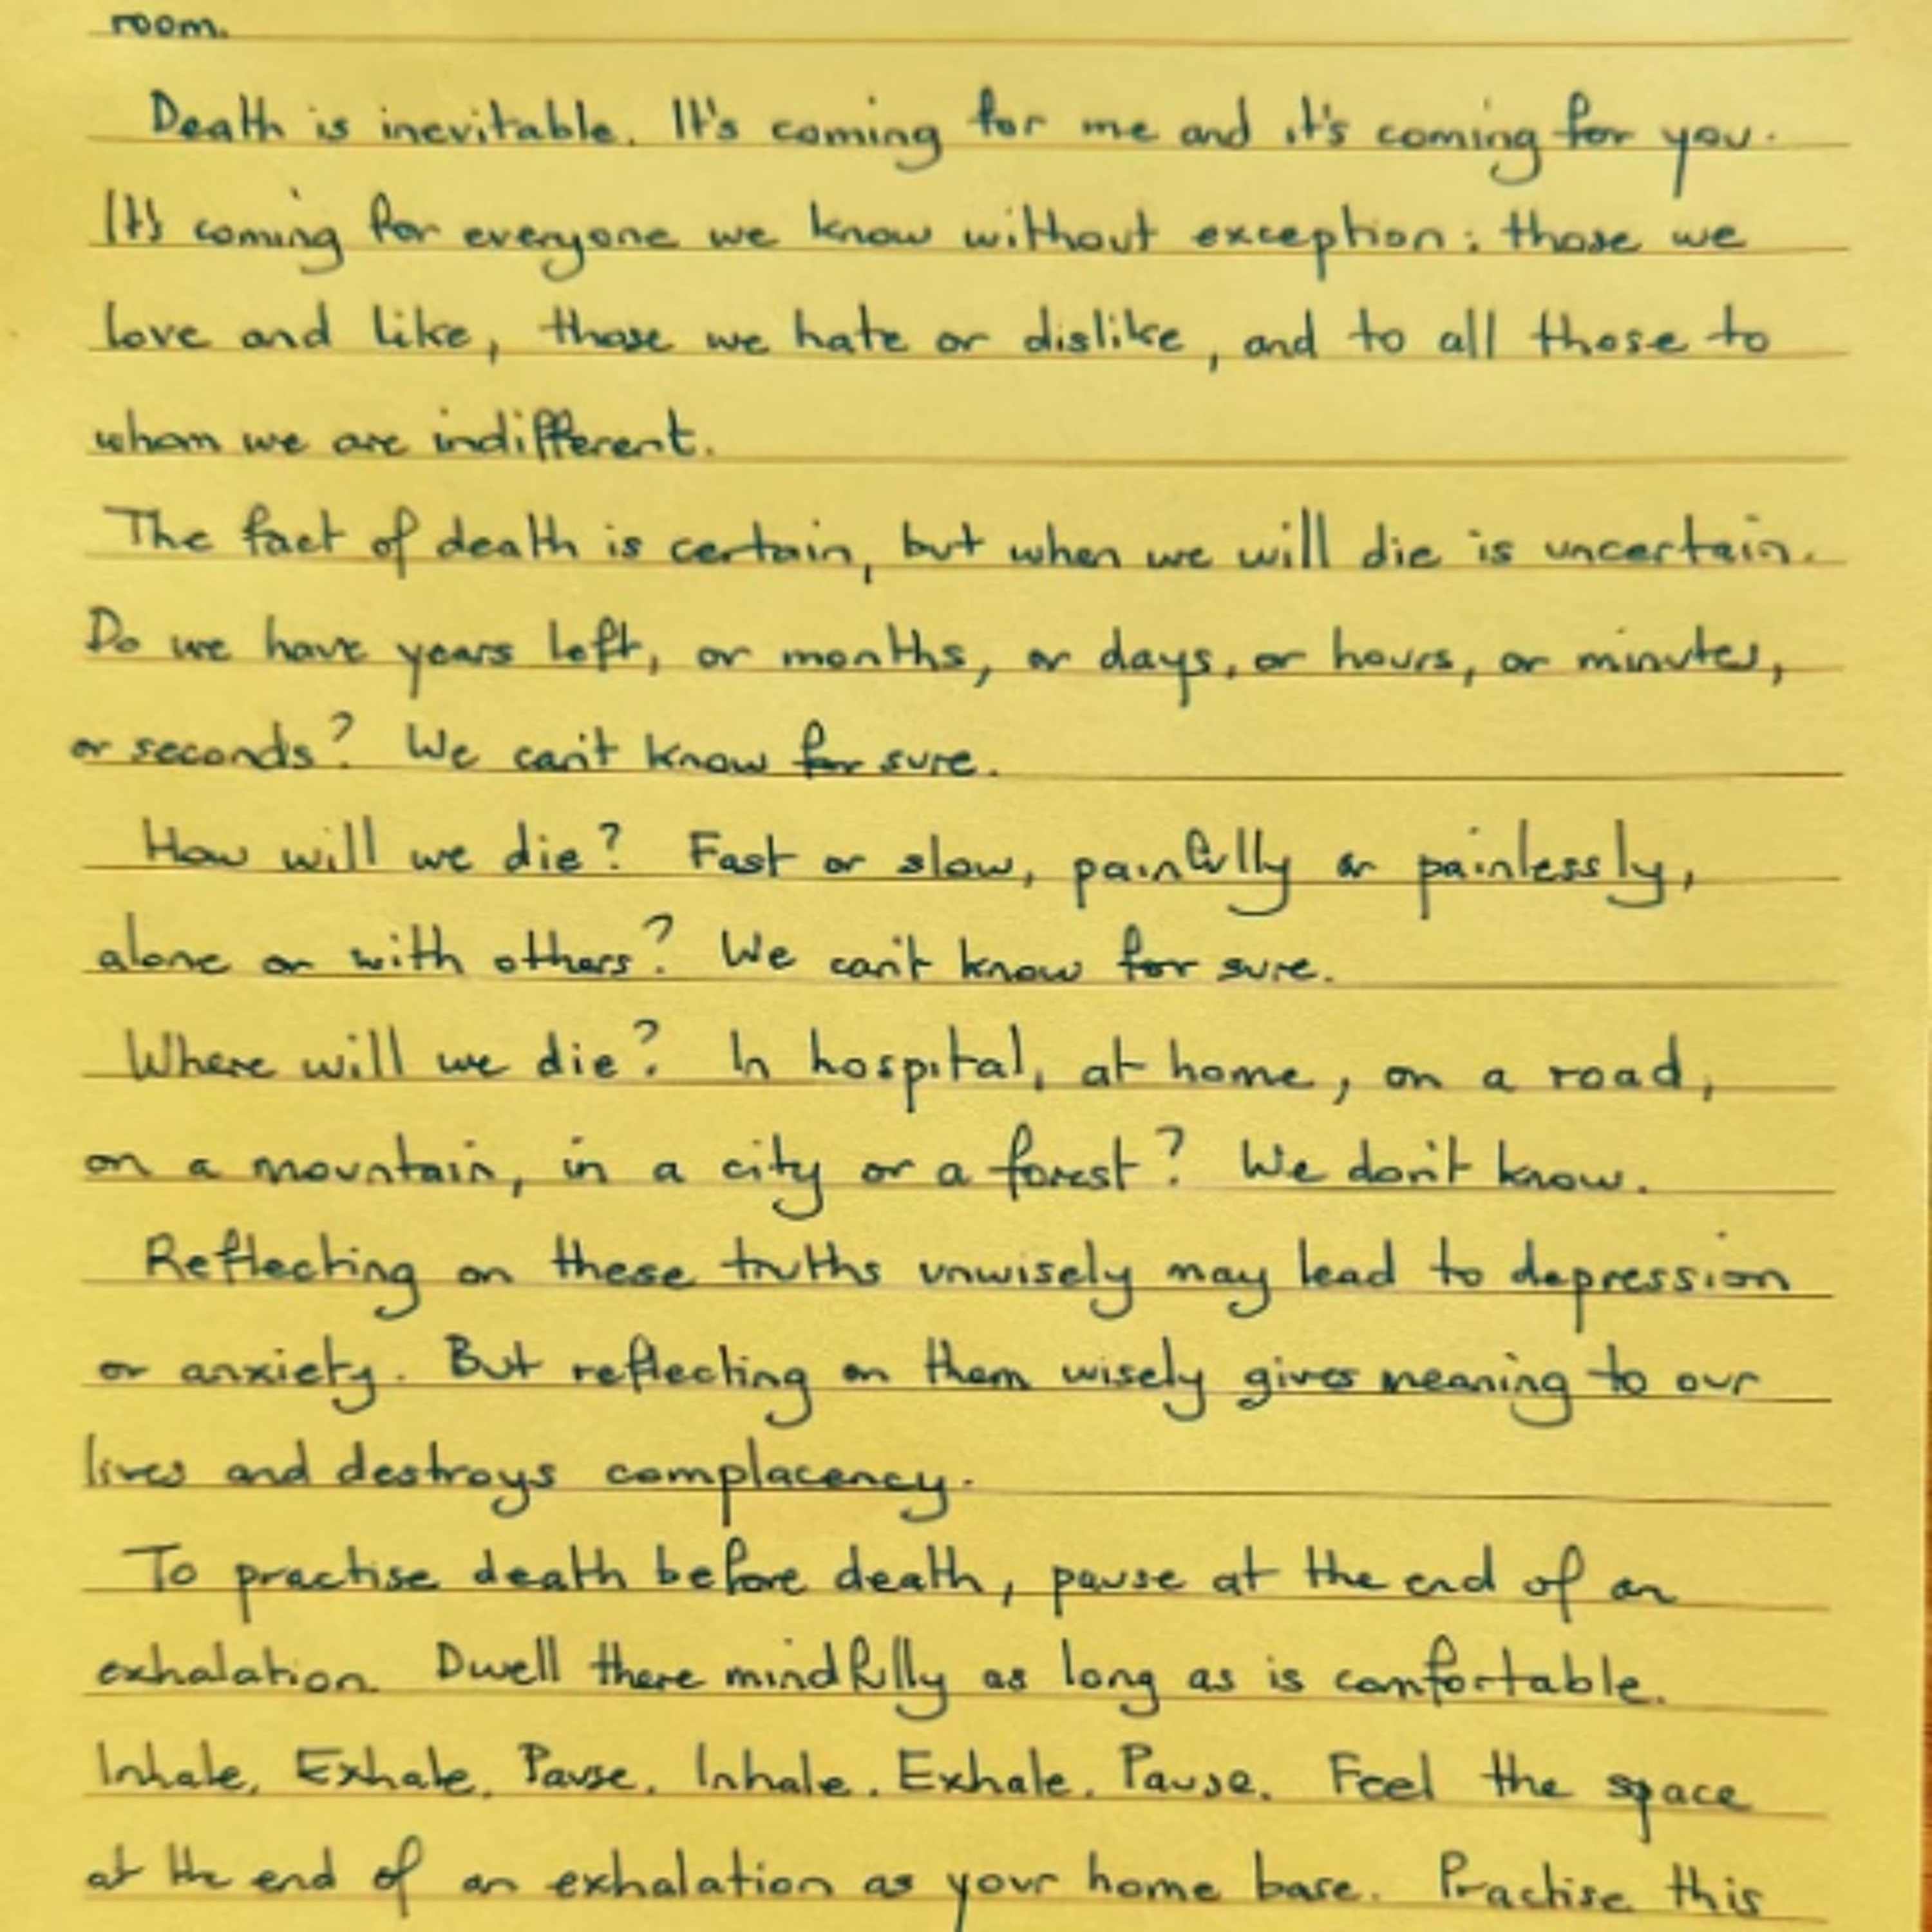 room.
Death is inevitable. It's coming for me and it's coming for you.
It's coming for everyone we know without exception: those we
love and like, those we hate or dislike, and to all those to
whom we are indifferent.
The fact of death is certain, but when we will die is uncertain.
Do we have years left, or months, or days, or hours, or minutes,
or seconds? We can't know for sure.
How will we die? Fast or slow, painfully or painlessly,
alone or with others? We can't know for sure.
Where will we die? In hospital, at home, on a road,
on a mountain, in a city or a forest? We don't know.
Reflecting on these truths unwisely may lead to depression
or anxiety. But reflecting on them wisely gives meaning to our
lives and destroys complacency.
To practise death before death, pause at the end of an
exhalation. Dwell there mindfully as long as is comfortable.
Inhale. Exhale. Pause. Inhale. Exhale. Pause. Feel the space
at the end of an exhalation as your home base. Practise this